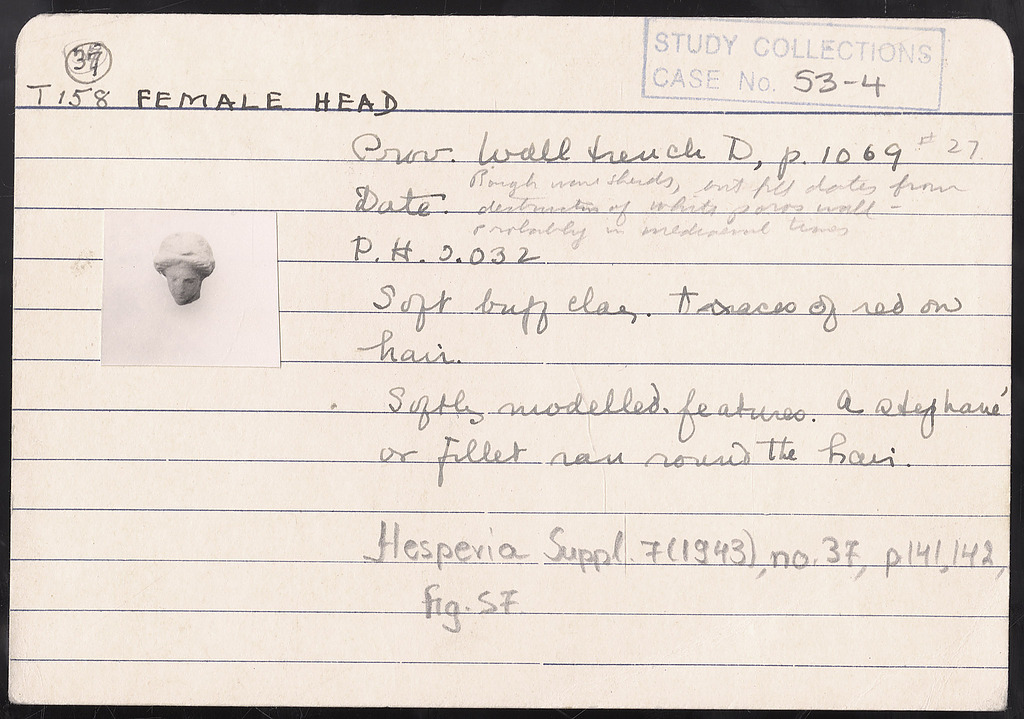 37
STUDY COLLECTIONS
CASE No. 53-4
T 158 FEMALE HEAD
Prov. Wall trench D, p. 1069 #27
Rough ware sherds, but fill dates from
Date. destruction of white poros wall -
probably in mediaeval times
P.H. 0.032
Soft buff clay. Traces of red on
hair.
Softly modelled features. A stephané
or fillet ran round the hair.
Hesperia Suppl. 7(1943), no. 37, p 141, 142,
fig. 57